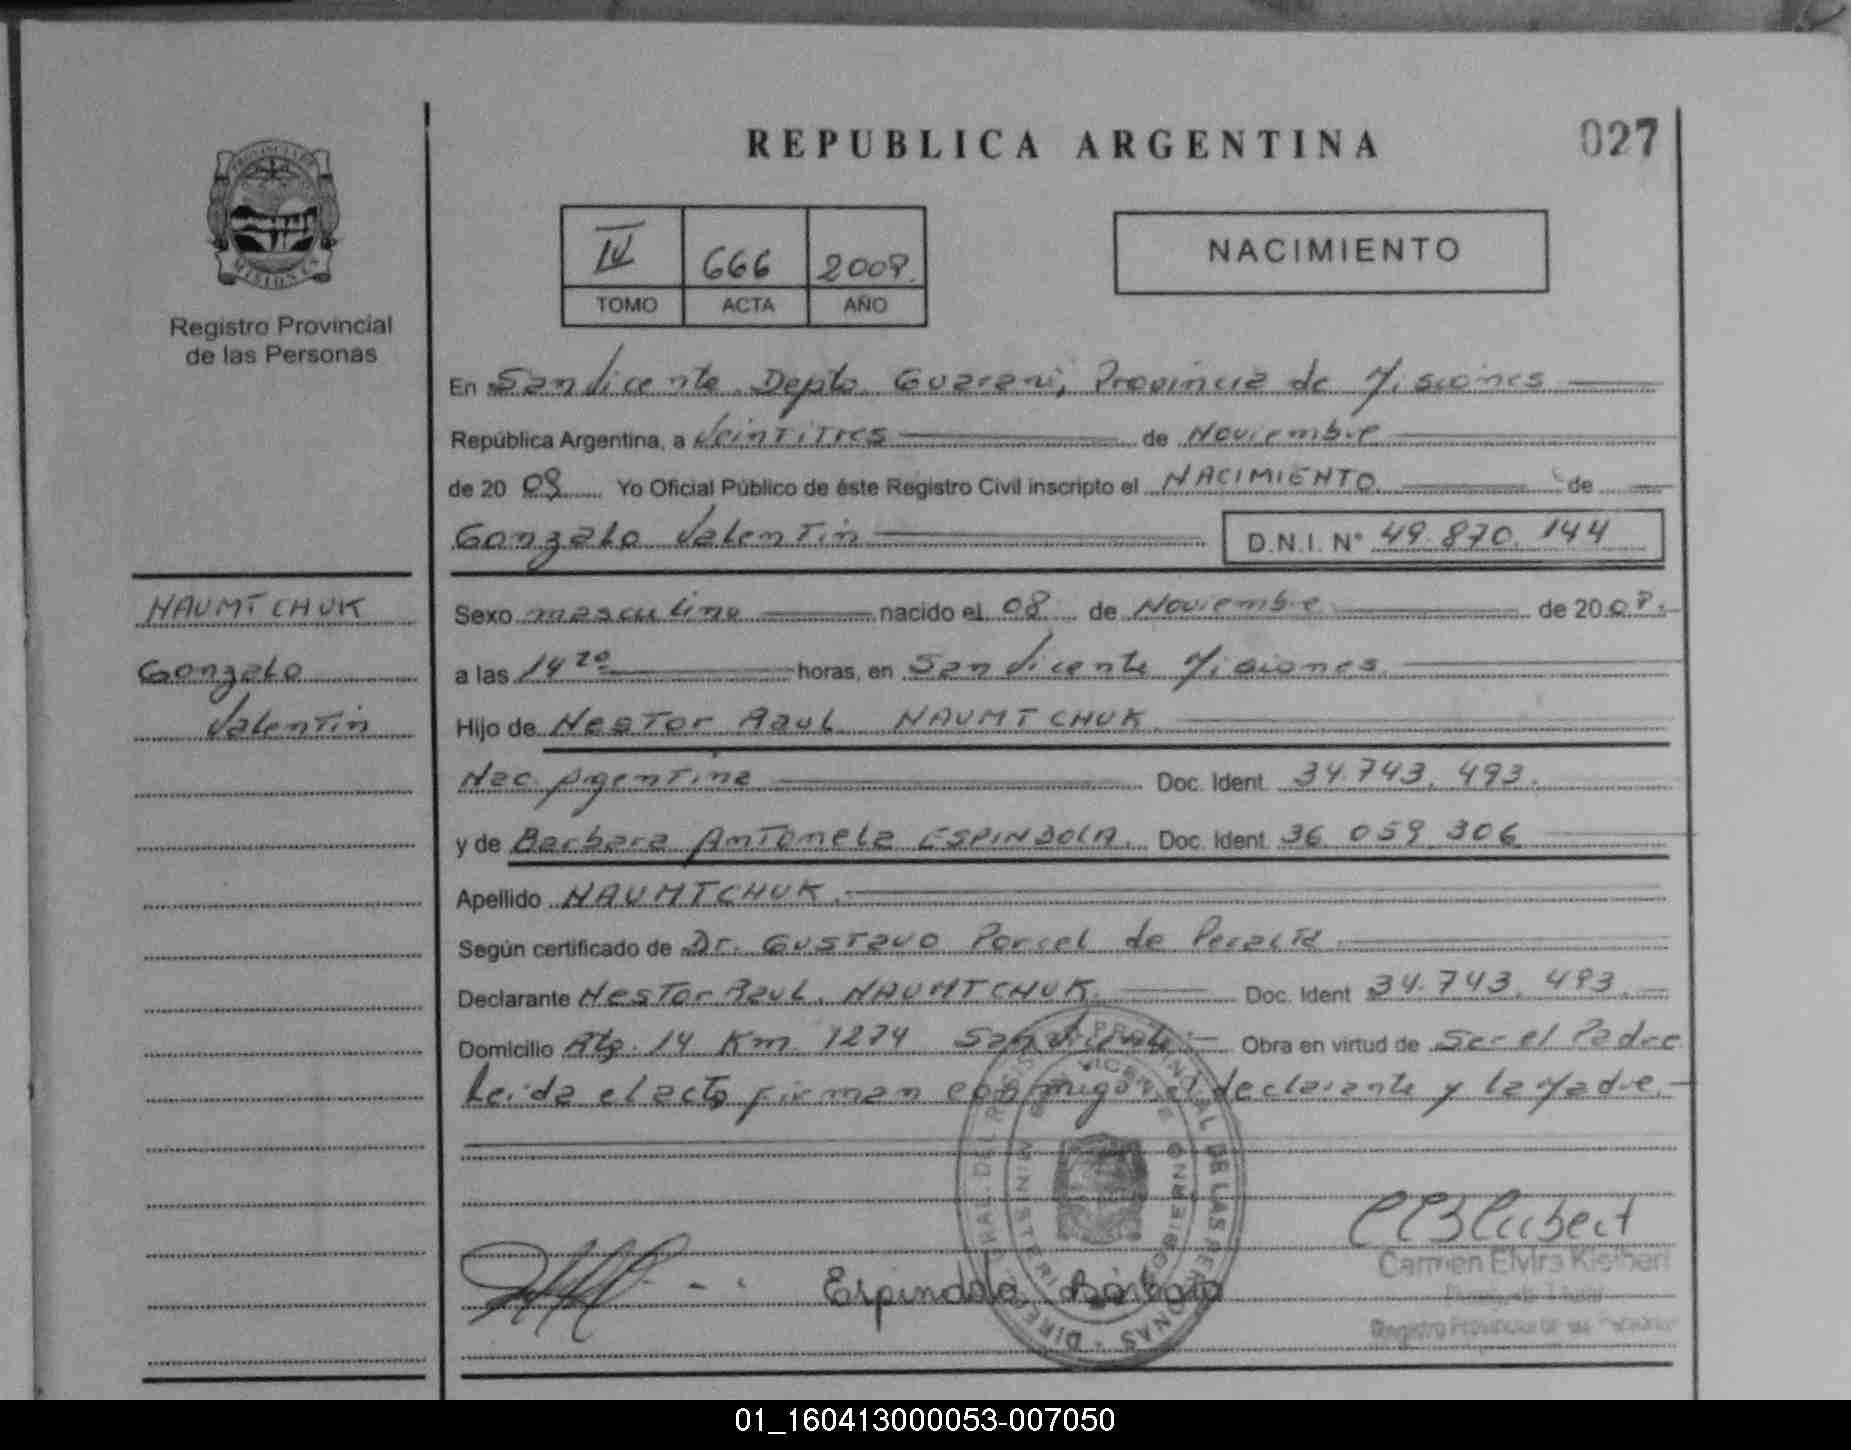 REPUBLICA ARGENTINA
027
PROVINCIA DE MISIONES
Registro Provincial
de las Personas
IV 666 2008.
TOMO ACTA AÑO
NACIMIENTO
En San Vicente Depto. Guarani, Provincia de Misiones
República Argentina, a Veintitres de Noviembre
de 20 08 Yo Oficial Público de éste Registro Civil inscripto el NACIMIENTO de
Gonzalo Valentin D.N.I. N° 49.870.144
NAUMTCHUK
Gonzalo
Valentin
Sexo masculino nacido el 08 de Noviembre de 2008.
a las 14 20 horas, en San Vicente Misiones.
Hijo de Nestor Raul NAUMTCHUK.
Nac. Argentina Doc. Ident. 34.743.493.
y de Barbara Antonela ESPINDOLA. Doc. Ident. 36 059 306
Apellido NAUMTCHUK.
Según certificado de Dr. Gustavo Porcel de Peralta
Declarante Nestor Raul NAUMTCHUK. Doc. Ident 34.743.493.
Domicilio Km 1274 San Vicente Obra en virtud de Ser el Padre
Leida el acta firman conmigo el declarante y la Madre.
Espindola Bárbara
Carmen Elvira
01_160413000053-007050